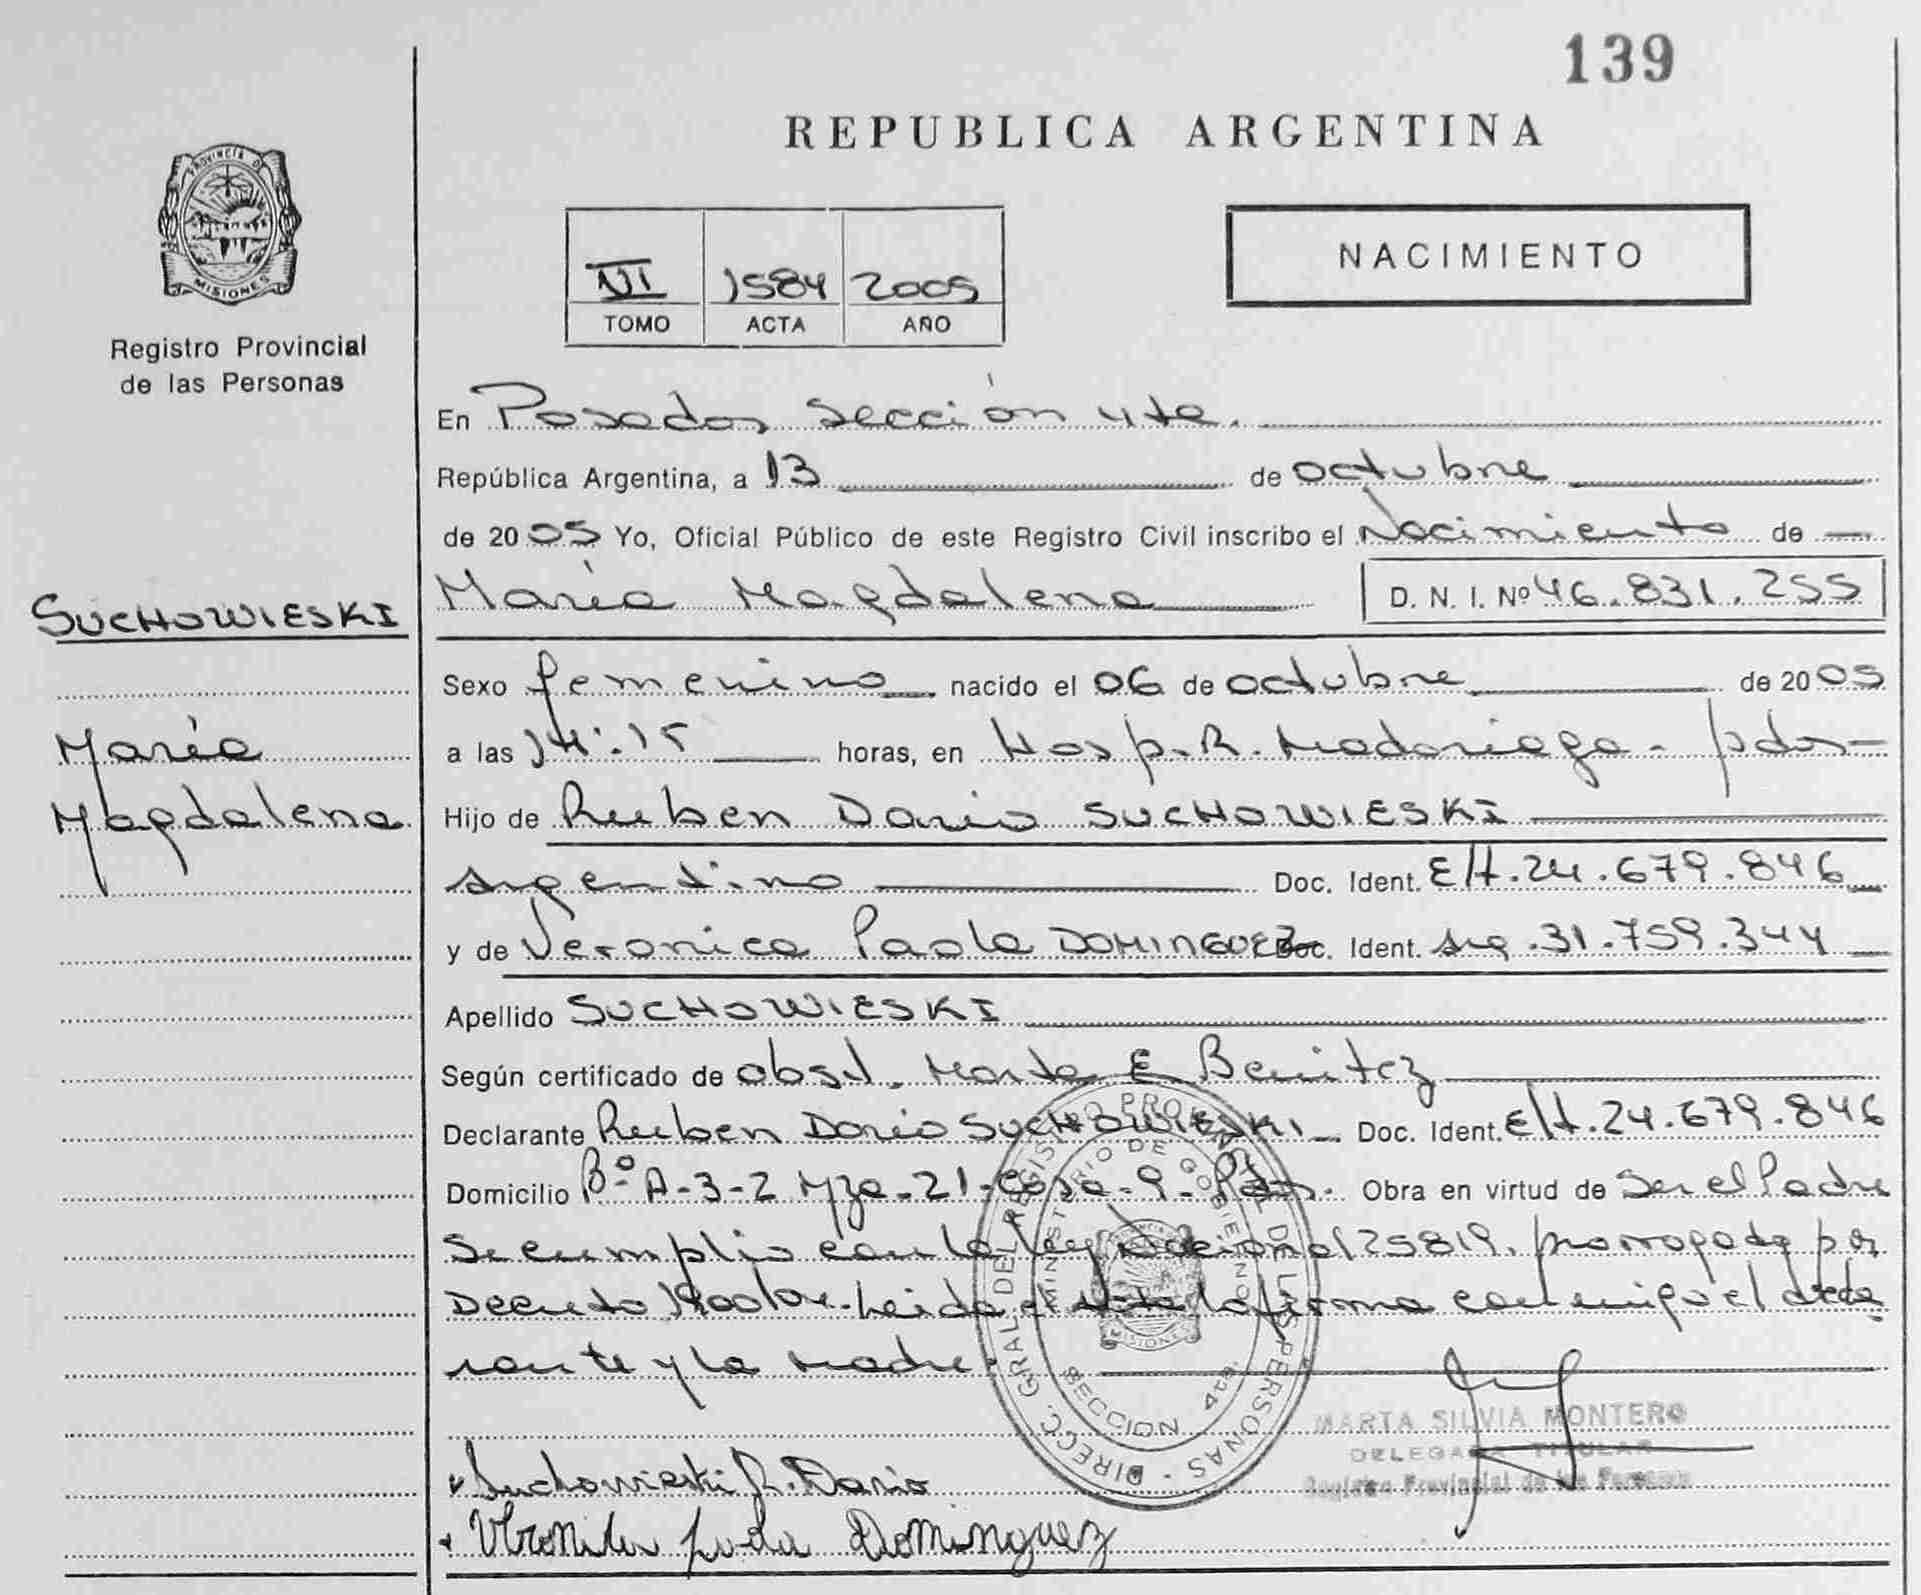 139
REPUBLICA ARGENTINA
PROVINCIA DE
MISIONES
Registro Provincial
de las Personas
1584 2005
TOMO ACTA AÑO
NACIMIENTO
En Posadas Sección 4ta.
República Argentina, a 13 de octubre
de 2005 Yo, Oficial Público de este Registro Civil inscribo el Nacimiento de
María Magdalena D. N. I. Nº 46.831.255
SUCHOWIESKI
María
Magdalena
Sexo femenino nacido el 06 de octubre de 2005
a las 14:15 horas, en Hosp. R. Madariaga - pdas-
Hijo de Ruben Dario SUCHOWIESKI
argentino Doc. Ident. E/t. 24.679.846
y de Veronica Paola DOMINGUEZ Doc. Ident. Arg. 31.759.344
Apellido SUCHOWIESKI
Según certificado de obst. Marta E Benitez
Declarante Ruben Dario SUCHOWIESKI Doc. Ident. E/t. 24.679.846
Domicilio Bº A-3-2 Mza-21-Casa-9-Pdas. Obra en virtud de Ser el Padre
Se cumplio con la Ley Nacional 25819, prorrogada por
Decreto 1900/04. Leida el Acta la firma conmigo el decla
rante y la madre.
DIRECC. GRAL DEL REGISTRO PROVINCIAL DE LAS PERSONAS
MINISTERIO DE GOBIERNO
MISIONES
SECCION 4ta.
MARTA SILVIA MONTERO
DELEGADA TITULAR
Registro Provincial de las Personas
Suchowieski R. Dario
Dominguez